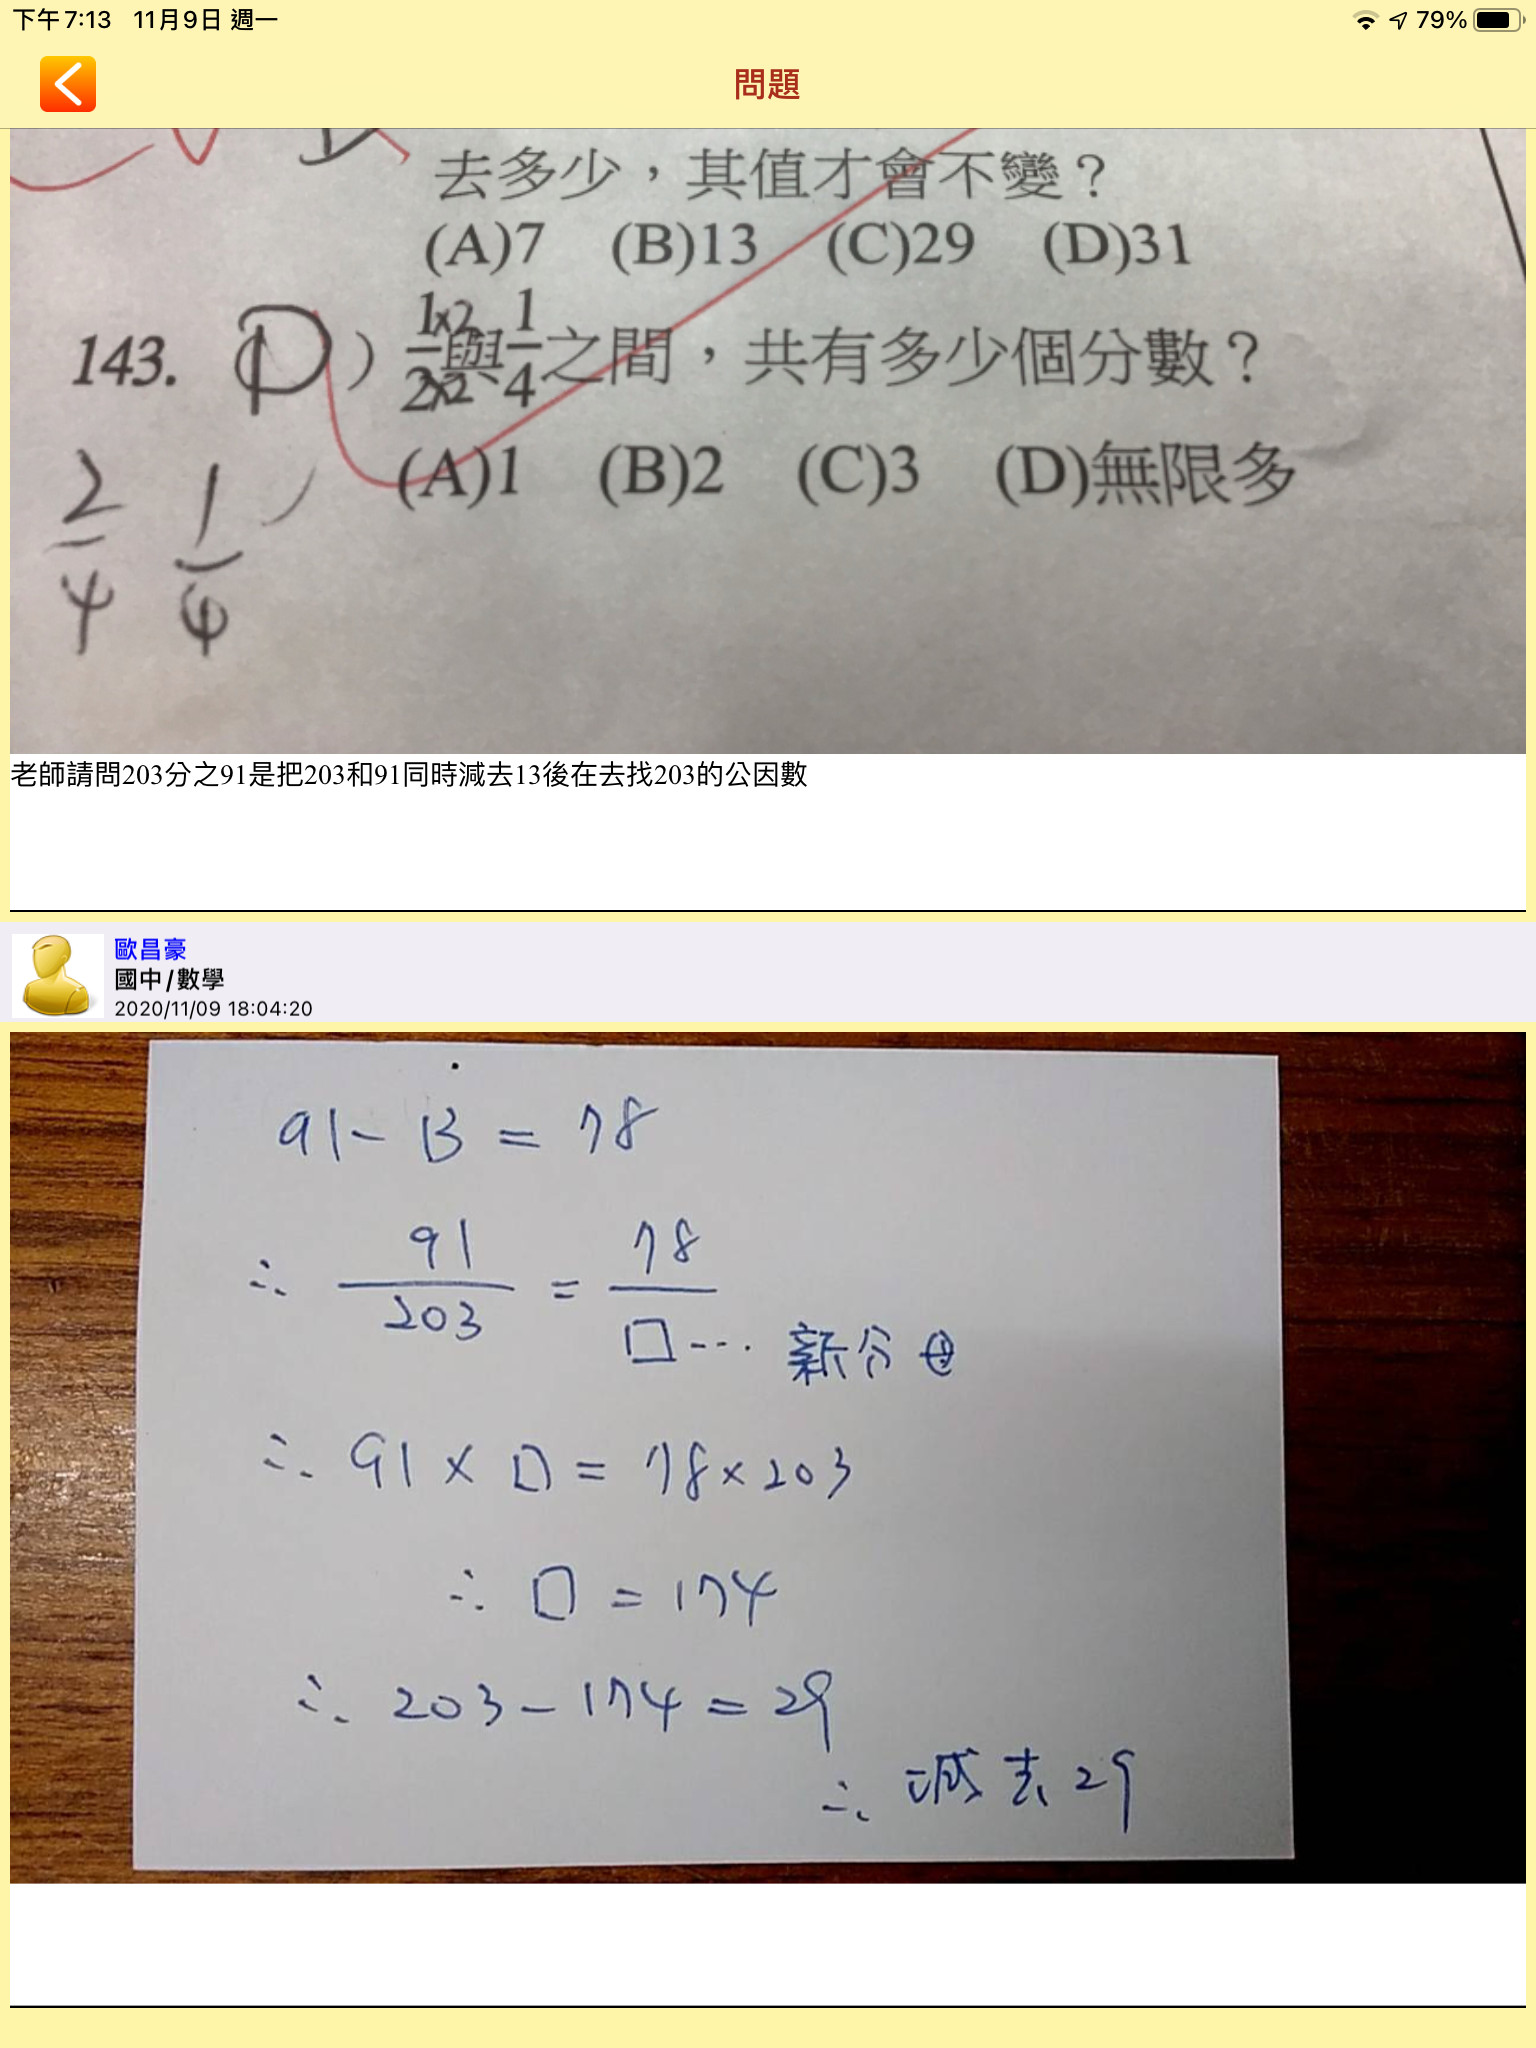 下午7:13 11月9日 週一 79%
問題
去多少，其值才會不變？
(A)7 (B)13 (C)29 (D)31
143. (D) 1×2/2×2 與 1/4 之間，共有多少個分數？
(A)1 (B)2 (C)3 (D)無限多
2/4 1/4
老師請問203分之91是把203和91同時減去13後在去找203的公因數
歐昌豪
國中/數學
2020/11/09 18:04:20
91-13=78
∴ 91/203 = 78/□… 新分母
∴ 91×□=78×203
∴ □=174
∴ 203-174=29
∴ 減去29